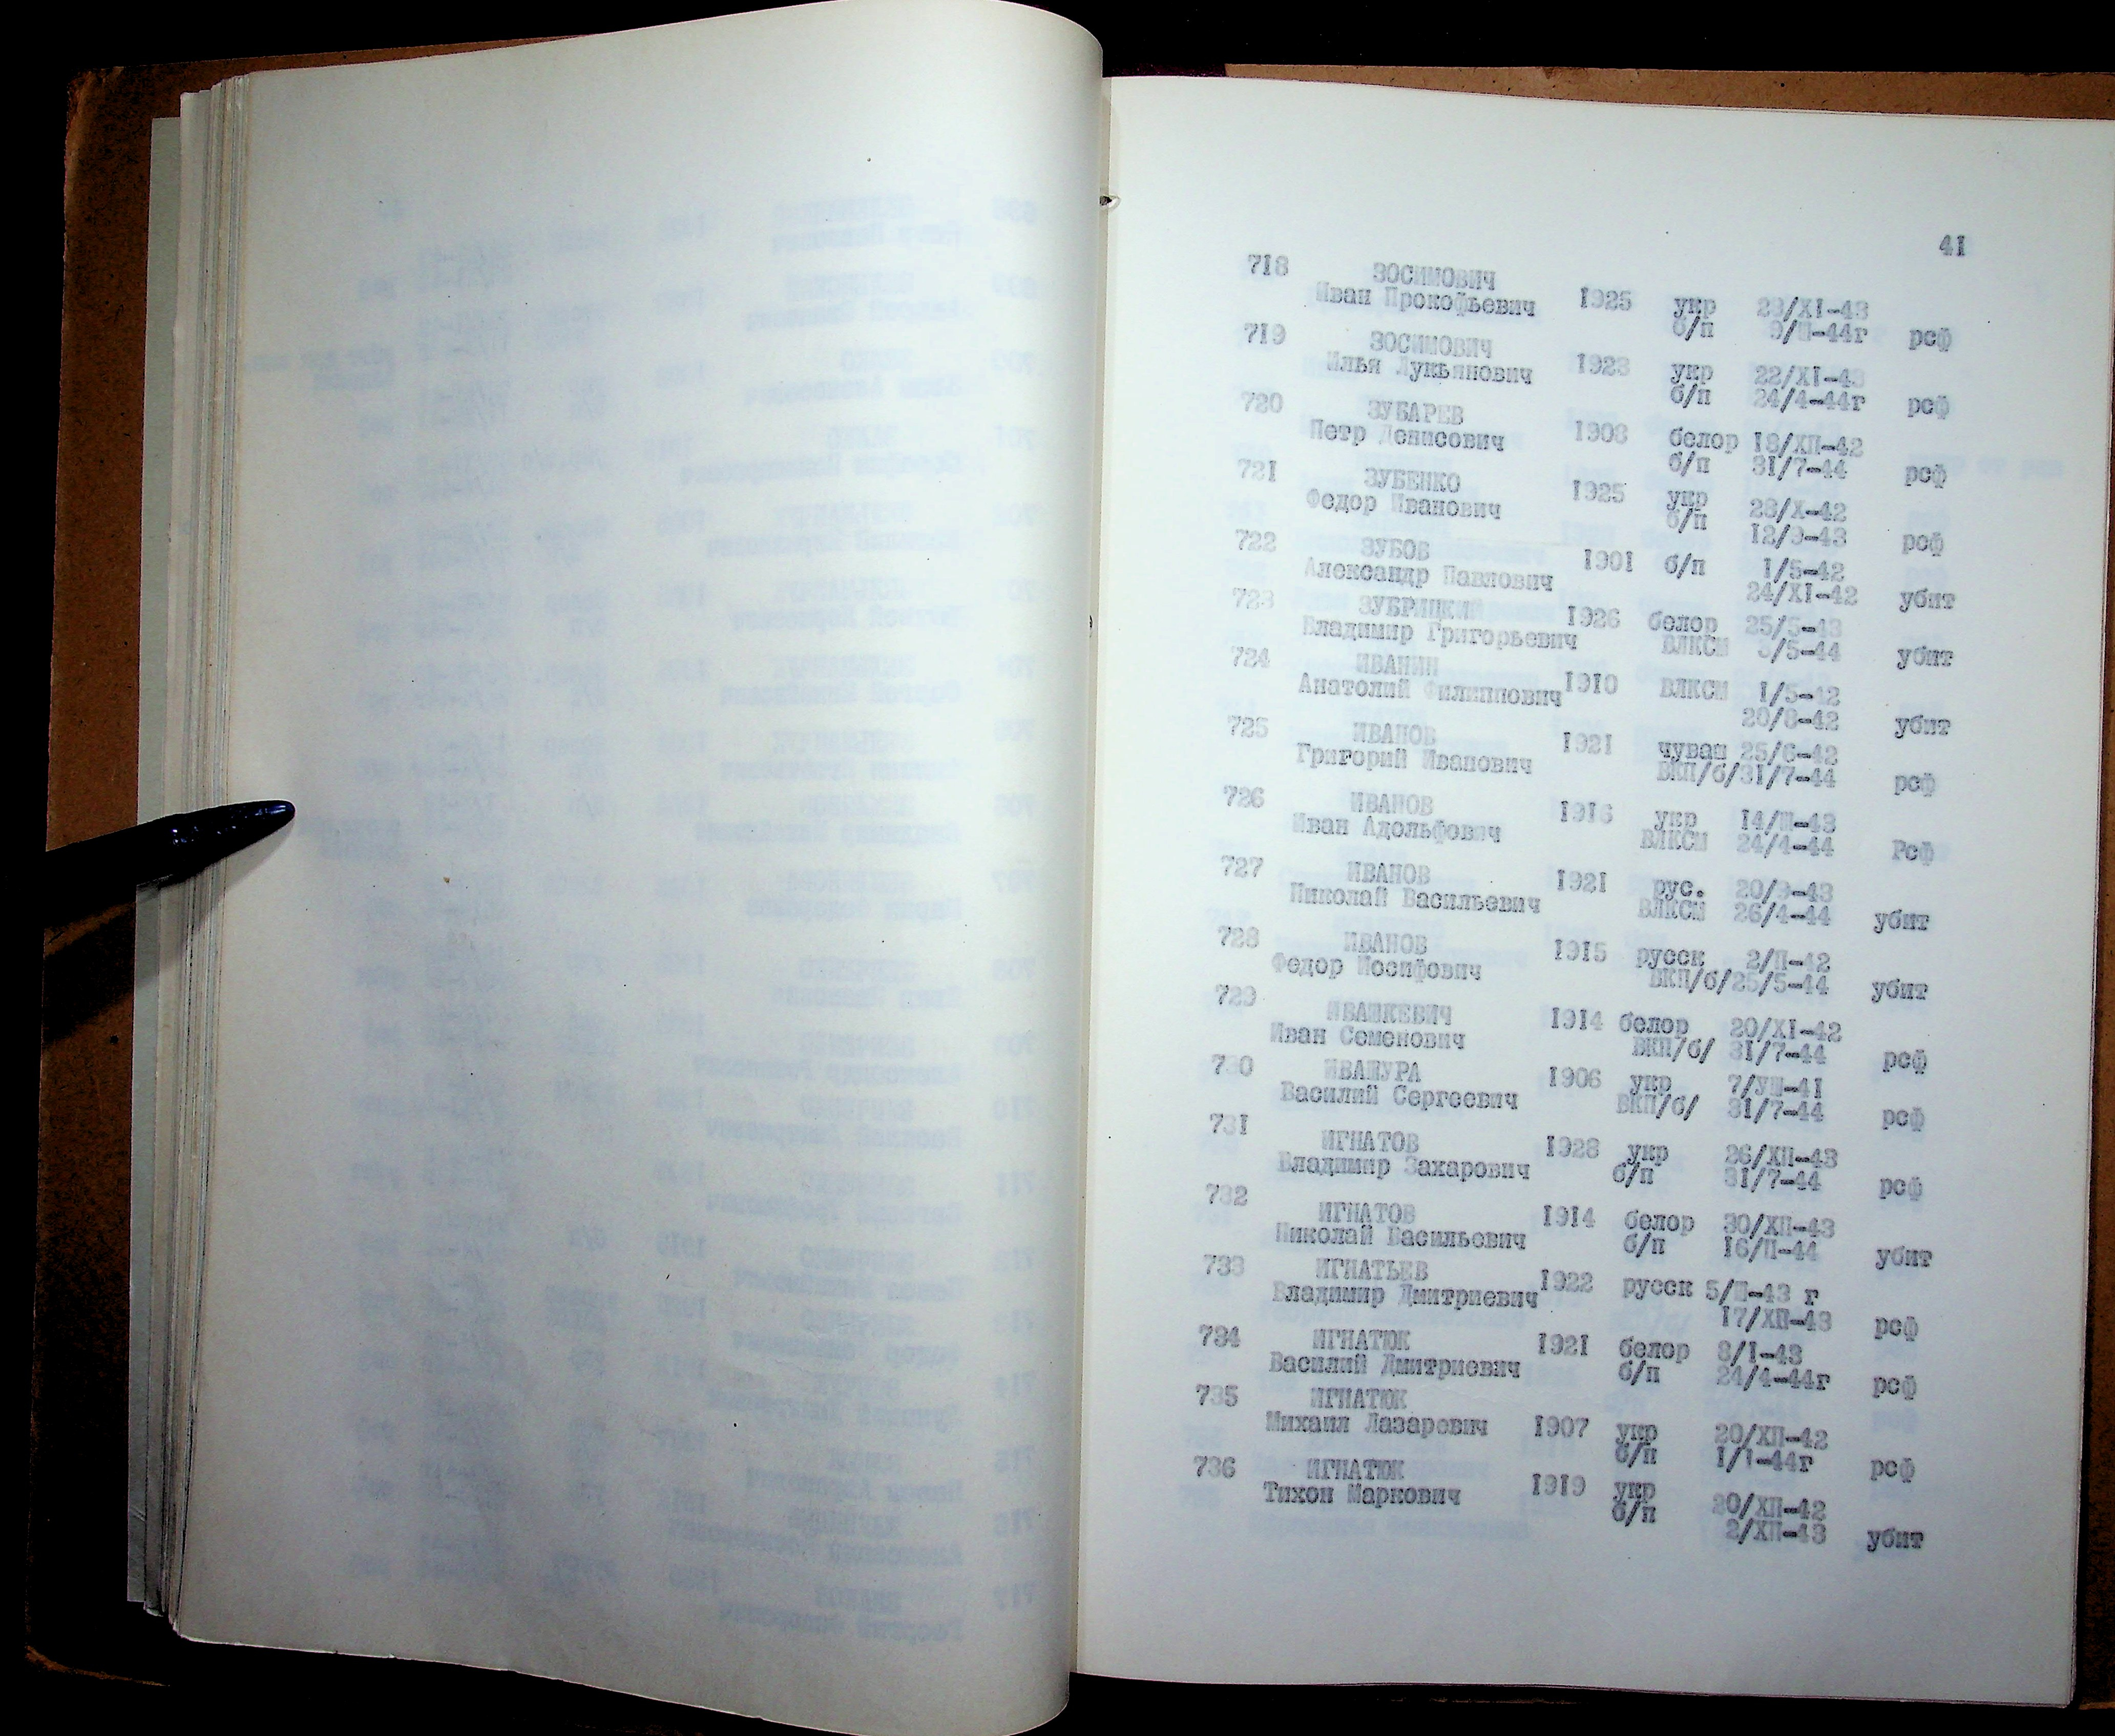 41
718 ЗОСИМОВИЧ
Иван Прокофьевич 1925 укр 23/XI-43
б/п 9/Ш-44г рсф
719 ЗОСИМОВИЧ
Илья Лукьянович 1923 укр 22/XI-43
б/п 24/4-44г рсф
720 ЗУБАРЕВ
Петр Денисович 1908 белор 18/ХП-42
б/п 31/7-44 рсф
721 ЗУБЕНКО
Федор Иванович 1925 укр 28/X-42
б/п 12/9-43 рсф
722 ЗУБОВ
Александр Павлович 1901 б/п 1/5-42
24/XI-42 убит
723 ЗУБРИЦКИЙ
Владимир Григорьевич 1926 белор 25/5-43
ВЛКСМ 3/5-44 убит
724 ИВАНИН
Анатолий Филиппович 1910 ВЛКСМ 1/5-42
20/8-42 убит
725 ИВАНОВ
Григорий Иванович 1921 чуваш 25/6-42
ВКП/б/31/7-44 рсф
726 ИВАНОВ
Иван Адольфович 1916 укр 14/Ш-43
ВЛКСМ 24/4-44 Рсф
727 ИВАНОВ
Николай Васильевич 1921 рус. 20/9-43
ВЛКСМ 26/4-44 убит
728 ИВАНОВ
Федор Иосифович 1915 русск 2/П-42
ВКП/б/25/5-44 убит
729 ИВАШКЕВИЧ
Иван Семенович 1914 белор 20/XI-42
ВКП/б/ 31/7-44 рсф
730 ИВАШУРА
Василий Сергеевич 1906 укр 7/УШ-41
ВКП/б/ 31/7-44 рсф
731 ИГНАТОВ
Владимир Захарович 1928 укр 26/ХП-43
б/п 31/7-44 рсф
732 ИГНАТОВ
Николай Васильевич 1914 белор 30/ХП-43
б/п 16/П-44 убит
733 ИГНАТЬЕВ
Владимир Дмитриевич 1922 русск 5/Ш-43 г
17/ХП-43 рсф
734 ИГНАТЮК
Василий Дмитриевич 1921 белор 8/I-43
б/п 24/4-44г рсф
735 ИГНАТЮК
Михаил Лазаревич 1907 укр 20/ХП-42
б/п 1/1-44г рсф
736 ИГНАТЮК
Тихон Маркович 1919 укр 20/ХП-42
б/п 2/ХП-43 убит